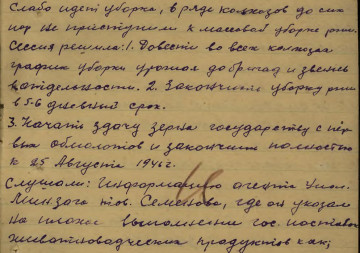 Слабо идет уборка, в ряде колхозов до сих
пор не приступили к массовой уборке ржи.
Сессия решила: 1. Довести во всех колхозах
график уборки урожая до бригад и звеньев
в отдельности. 2. Закончить уборку ржи
в 5-6 дневный срок.
3. Начать сдачу зерна государству с пер
вых обмолотов и закончить полностью
к 25 Августа
Слушали: Информацию агента Упол.
Минзага тов. Семенова, где он указал
на плохое выполнение гос. поставок
животноводческих продуктов как;